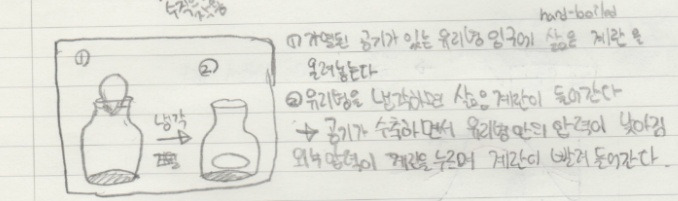 hard-boiled
① 가열된 공기가 있는 유리병 입구에 삶은 계란을
올려놓는다
② 유리병을 냉각하면 삶은 계란이 들어간다
→ 공기가 수축하면서 유리병 안의 압력이 낮아짐
외부 압력이 계란을 누르며 계란이 빨려 들어간다.
① ②
냉각